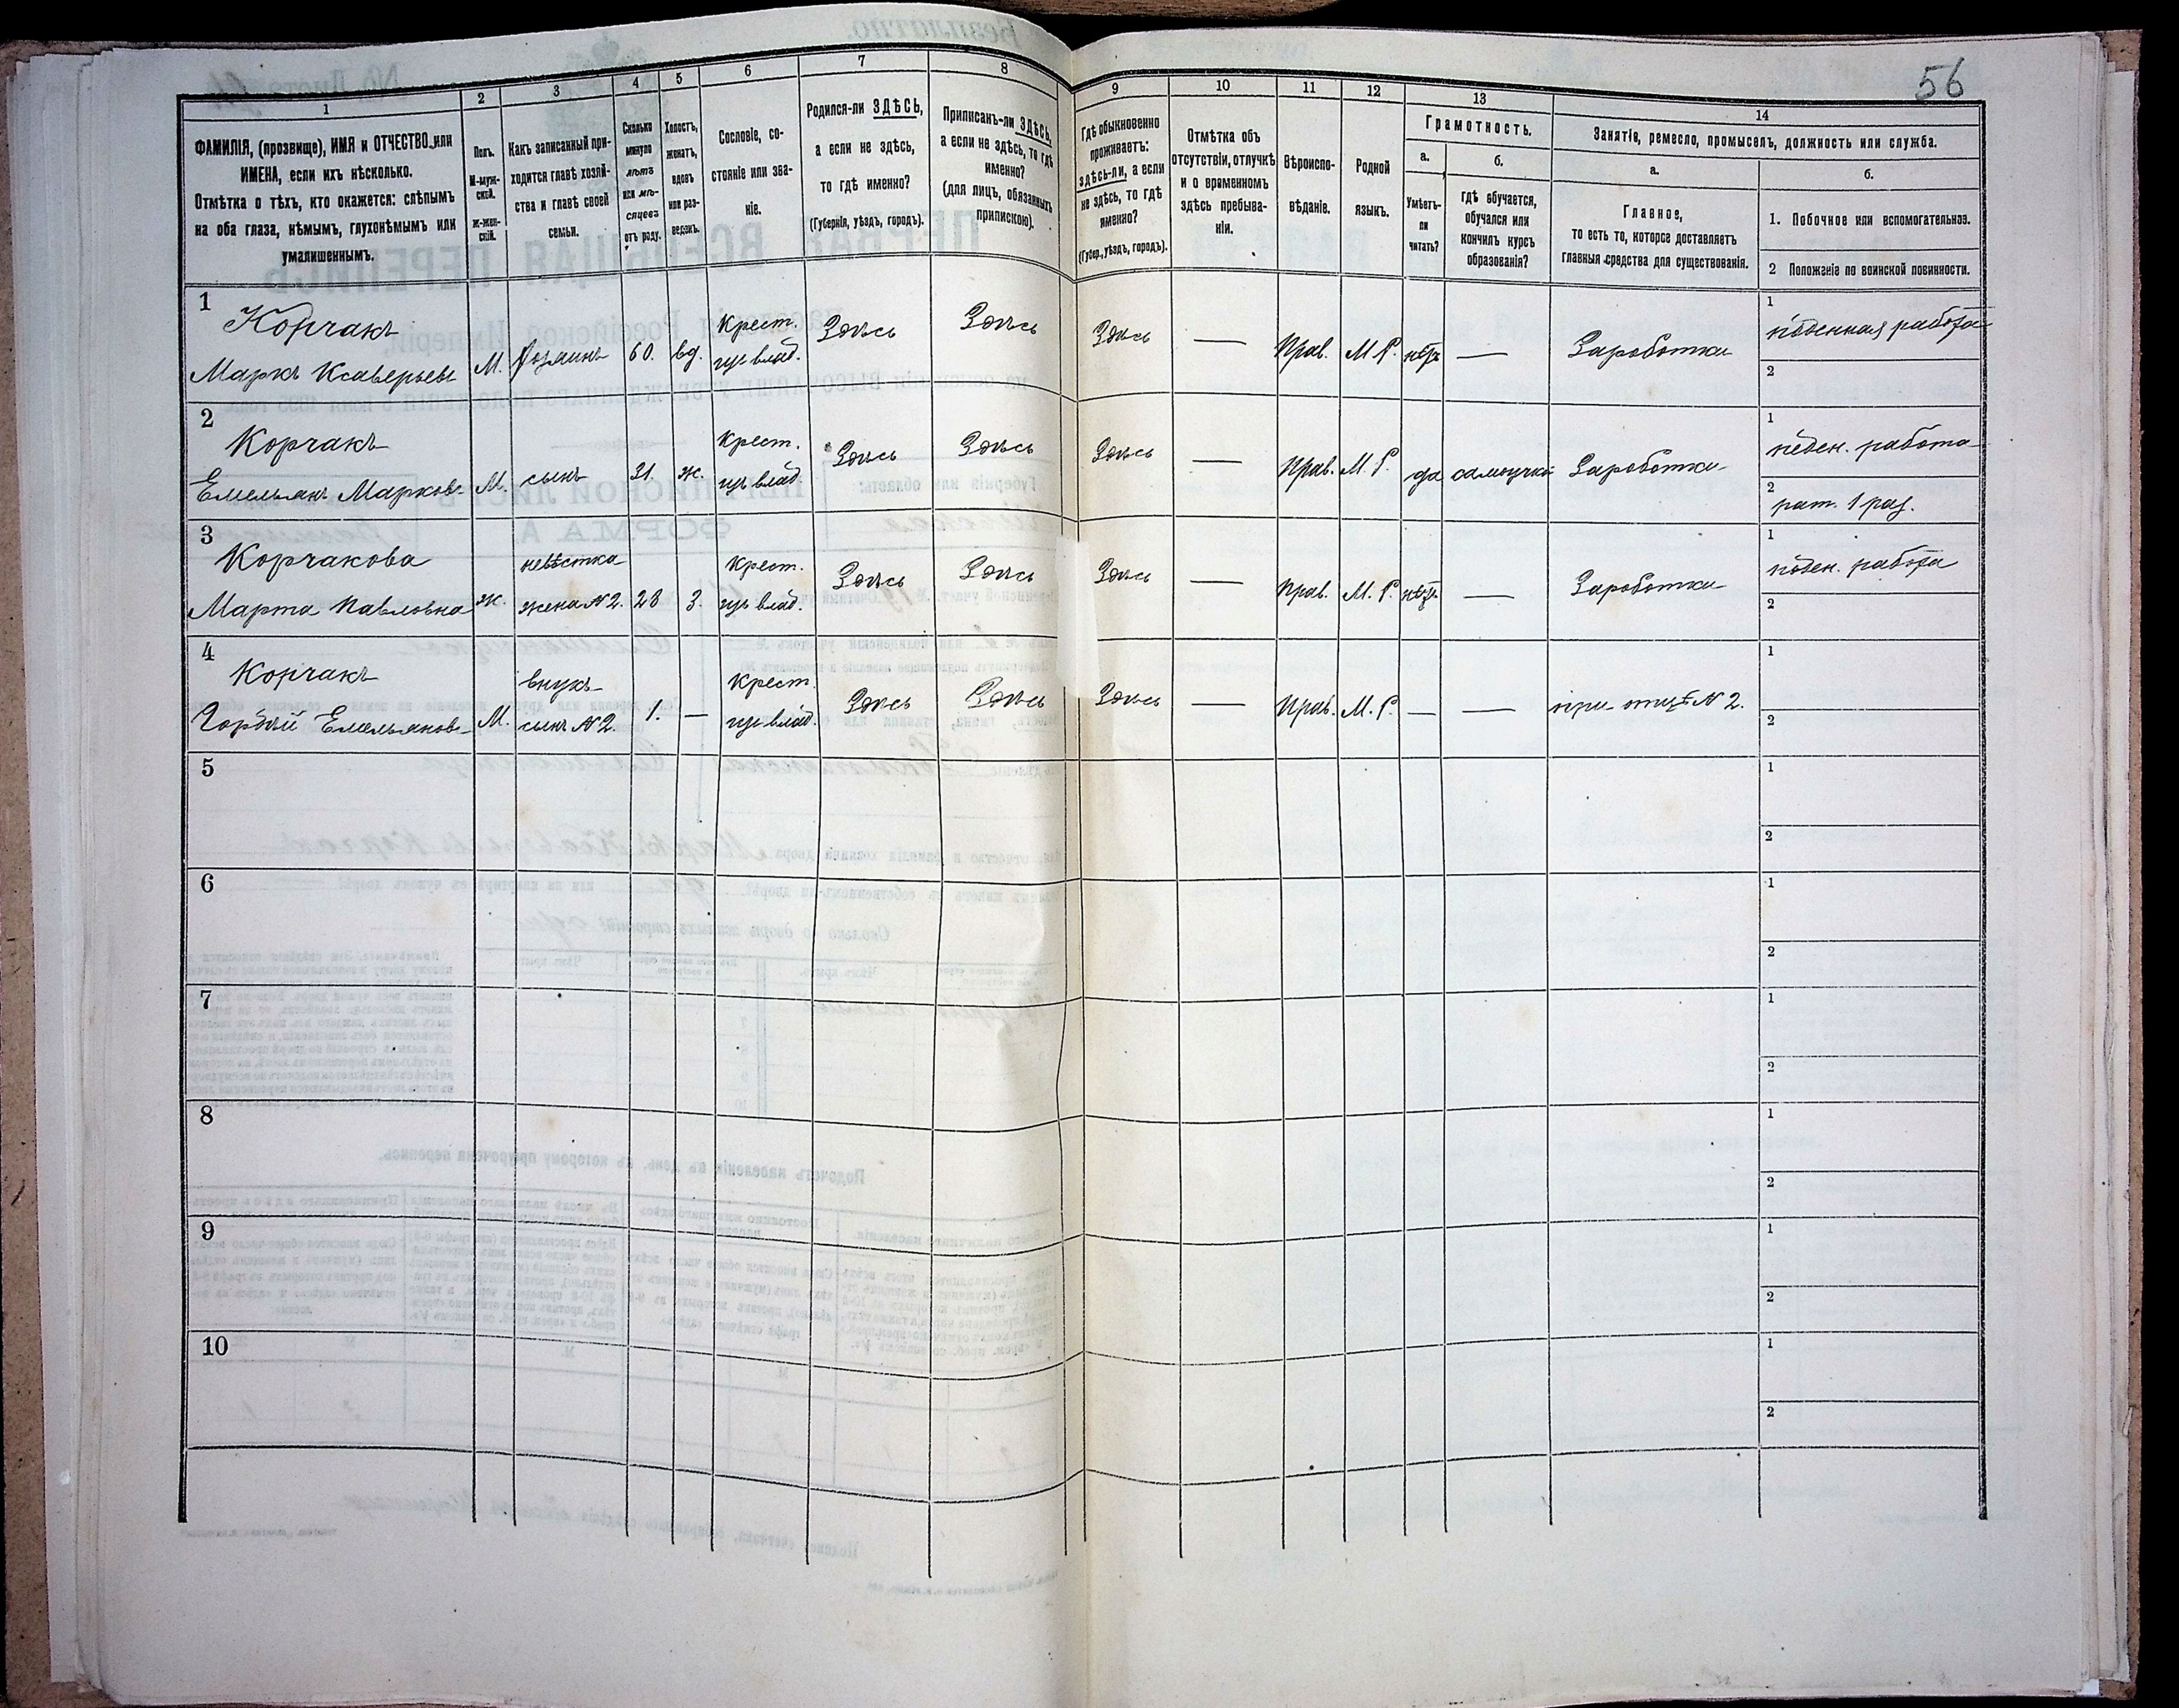 56
1
2
3
4
5
6
7
8
9
10
11
12
13
14
ФАМИЛІЯ, (прозвище), ИМЯ и ОТЧЕСТВО или
ИМЕНА, если ихъ нѣсколько.
Отмѣтка о тѣхъ, кто окажется: слѣпымъ
на оба глаза, нѣмымъ, глухонѣмымъ или
умалишеннымъ.
Полъ.
М-муж-
ской.
ж-жен-
скій.
Какъ записанный при-
ходится главѣ хозяй-
ства и главѣ своей
семьи.
Сколько
минуло
лѣтъ
или мѣ-
сяцевъ
отъ роду.
Холостъ,
женатъ,
вдовъ
или раз-
веденъ.
Сословіе, со-
стояніе или зва-
ніе.
Родился-ли ЗДѢСЬ,
а если не здѣсь,
то гдѣ именно?
(Губернія, уѣздъ, городъ).
Приписанъ-ли ЗДѢСЬ,
а если не здѣсь, то гдѣ
именно?
(для лицъ, обязанныхъ
припискою).
Гдѣ обыкновенно
проживаетъ:
здѣсь-ли, а если
не здѣсь, то гдѣ
именно?
(Губер., уѣздъ, городъ).
Отмѣтка объ
отсутствіи, отлучкѣ
и о временномъ
здѣсь пребыва-
ніи.
Вѣроиспо-
вѣданіе.
Родной
языкъ.
Грамотность.
а.
Умѣетъ-
ли
читать?
б.
гдѣ обучается,
обучался или
кончилъ курсъ
образованія?
Занятіе, ремесло, промыселъ, должность или служба.
а.
Главное,
то есть то, которое доставляетъ
главныя средства для существованія.
б.
1. Побочное или вспомогательное.
2 Положеніе по воинской повинности.
1
Корчакъ
Маркъ Ксаверьевъ
М.
хозяинъ
60.
вд.
Крест.
изъ влад.
Здѣсь
Здѣсь
Здѣсь
—
Прав.
М.Р.
нѣтъ
—
Заработки
1
поденная работа
2
2
Корчакъ
Емельянъ Марковъ
М.
сынъ
31.
ж.
Крест.
изъ влад.
Здѣсь
Здѣсь
Здѣсь
—
Прав.
М.Р.
да
самоучкой
Заработки
1
поден. работа
2
рат. 1 раз.
3
Корчакова
Марта Павловна
ж.
невѣстка
жена №2.
28
З.
Крест.
изъ влад.
Здѣсь
Здѣсь
Здѣсь
—
Прав.
М.Р.
нѣтъ
—
Заработки
1
поден. работа
2
4
Корчакъ
Гордѣй Емельяновъ
М.
внукъ
сынъ №2.
1.
—
Крест.
изъ влад.
Здѣсь
Здѣсь
Здѣсь
—
Прав.
М.Р.
—
—
при отцѣ №2.
1
2
5
1
2
6
1
2
7
1
2
8
1
2
9
1
2
10
1
2